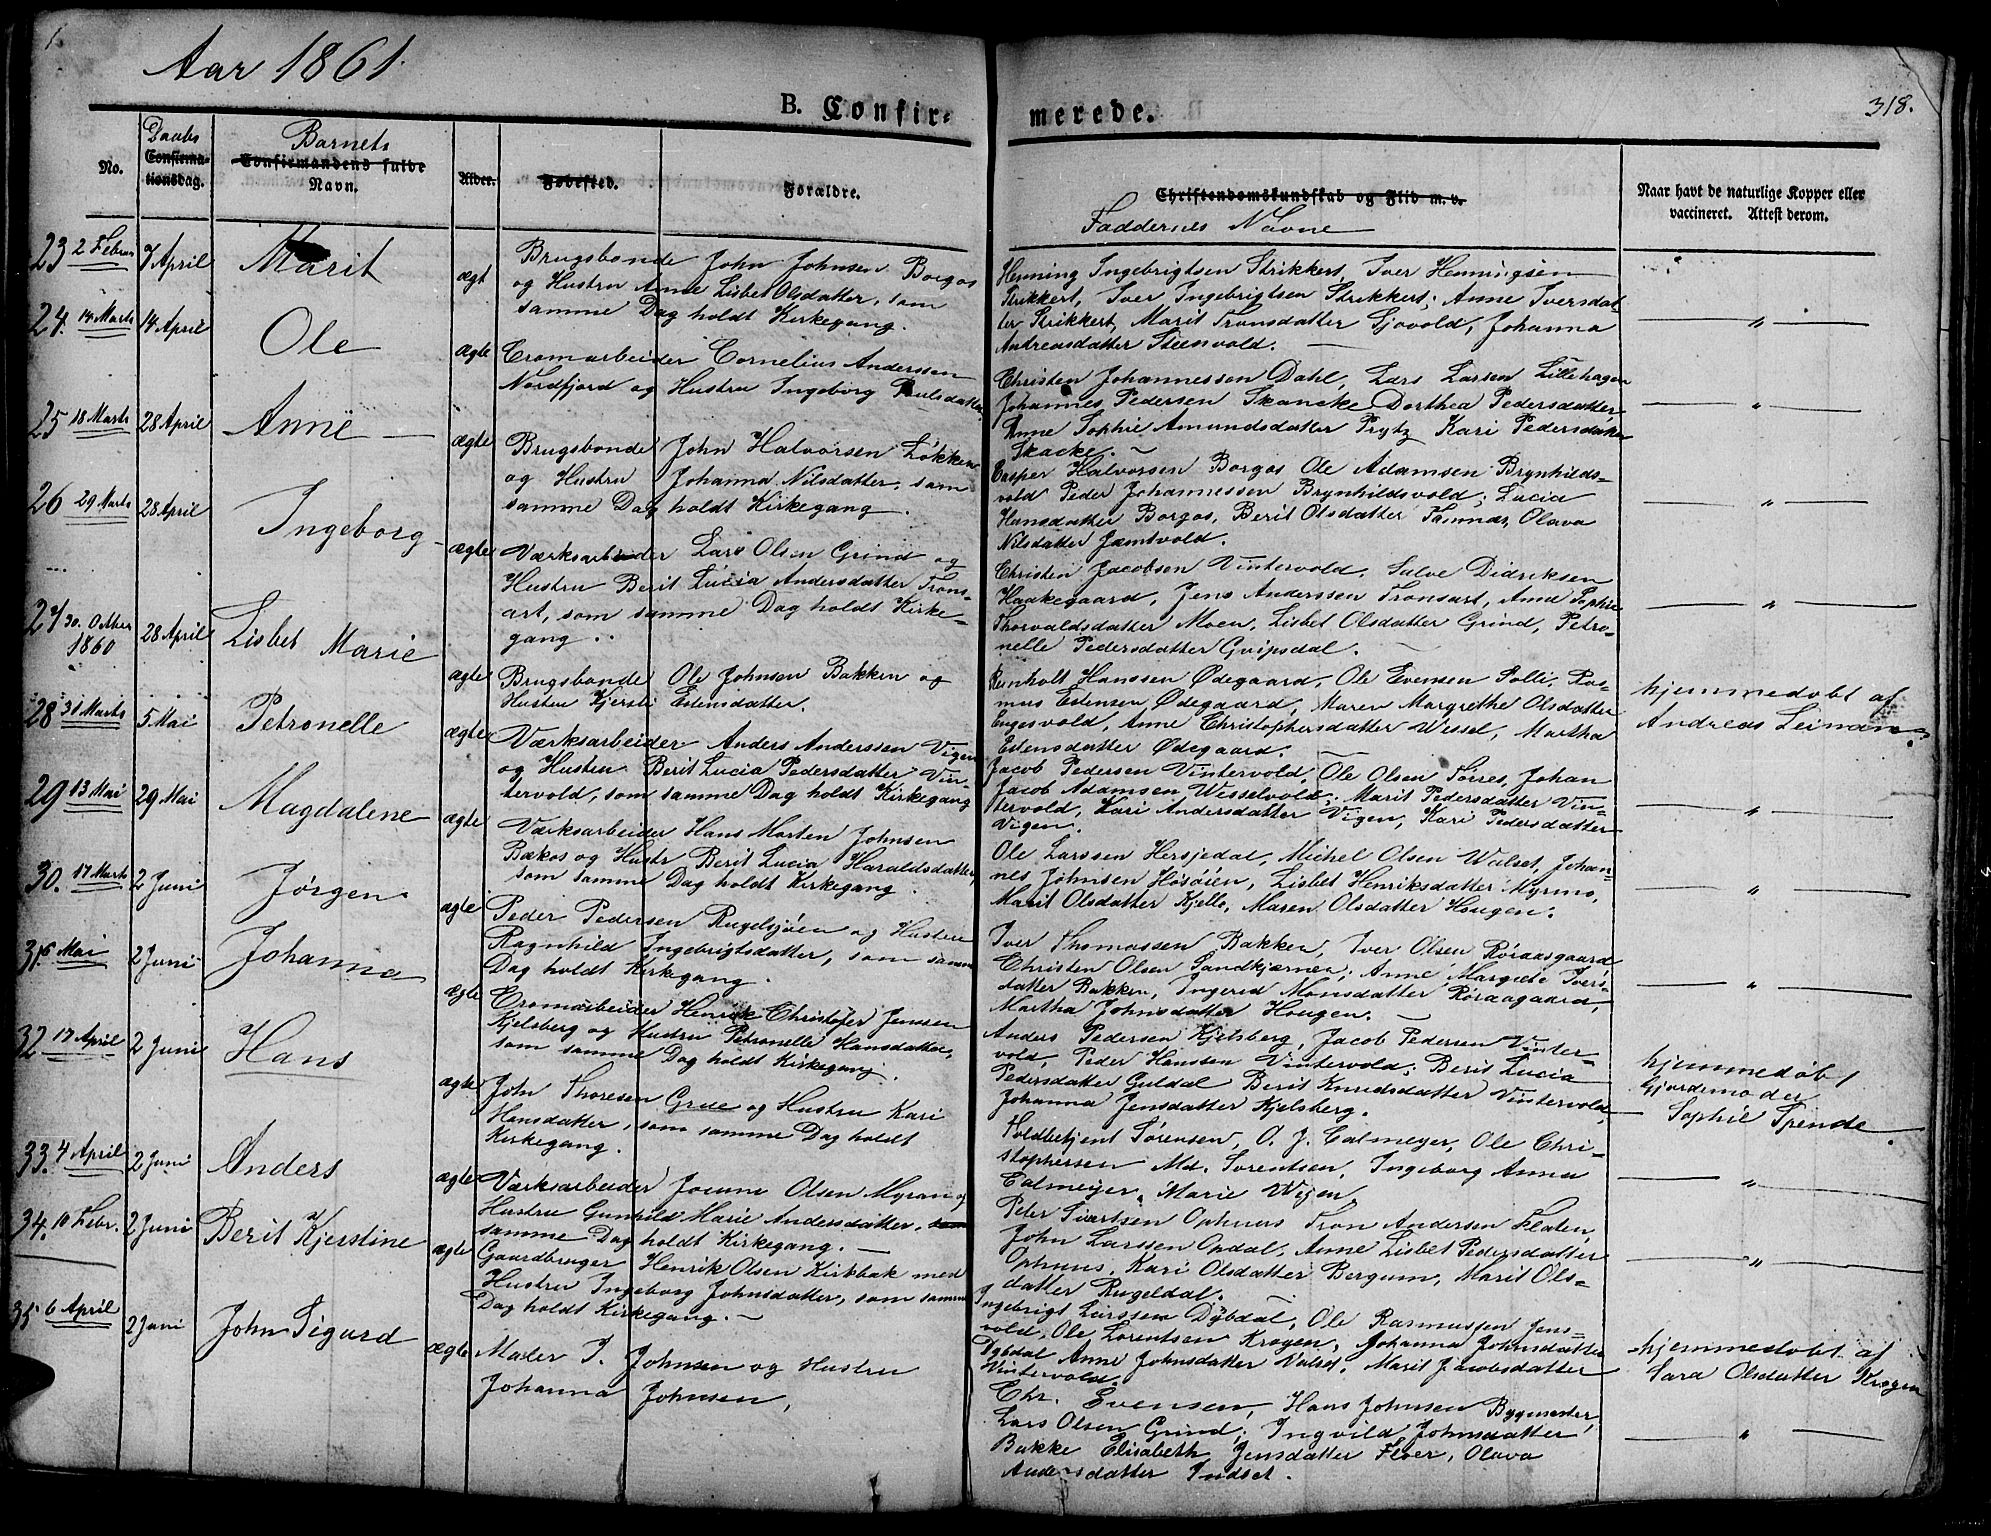 Aar 1861.
318.
B. Confirmerede.
No.
Daabs
Confirmationsdag.
Barnets
Confirmandens fulde
Navn.
Alder.
Fødested.
Forældre.
Christendomskundskab og Flid m. v.
Faddernes Navne
Naar havt de naturlige Kopper eller
vaccineret. Attest derom.
23 2 Februar 7 April Marit ægt
Brugsbonde John Johnsen Borgos
og Hustru Anne Lisbet Olsdatter, som
samme Dag holdt Kirkegang.
Henning Ingebrigtsen Strikkert, Iver Henningsen
Strikkert, Iver Ingebrigtsen Strikkert; Anne Iversdat-
ter Strikkert, Marit Tronsdatter Sjovold, Johanna
Andreasdatter Steenvold. —
— " —
24. 14 Marts 14 April Ole ægte
Cromarbeider Cornelius Anderssen
Nordfjord og Hustru Ingeborg Paulsdatter
Christen Johannessen Dahl, Lars Larsen Lillehagen
Johannes Pedersen Skancke, Dorthea Pedersdatter
Anne Sophie Amundsdatter Prytz Kari Pedersdatter
Skacke. —
— " —
25 18 Marts 28 April Anne — ægte
Brugsbonde John Halvorsen Løkken
og Hustru Johanna Nilsdatter, som
samme Dag holdt Kirkegang.
Casper Halvorsen Borgos Ole Adamsen Brynhilds-
vold Peder Johannessen Brynhildsvold; Lucia
Hansdatter Borgos, Berit Olsdatter Tamnæs, Olava
Nilsdatter Jamtvold.
— " —
26 29 Marts 28 April Ingeborg ægte
Værksarbeider Lars Olsen Grind og
Hustru Berit Lucia Andersdatter Trons-
art, som samme Dag holdt Kirke-
gang.
Christen Jacobsen Vintervold, Salve Didriksen
Haakegaard, Jens Anderssen Tronsart, Anne Sophie
Thorvaldsdatter Moen, Lisbet Olsdatter Grind, Petro-
nelle Pedersdatter Gvipsdal. —
— " —
27 30. Octber 1860 28 April Lisbet Marie ægte
Brugsbonde Ole Johnsen Bakken og
Hustru Kjersti Estensdatter.
Reinholt Hanssen Ødegaard, Ole Evensen Solli, Ras-
mus Estensen Ødegaard, Maren Margrethe Olsdatter
Engesvold, Anne Christophersdatter Wessel, Martha
Estensdatter Ødegaard. —
hjemmedøbt af
Andreas Leinan.
28 31 Marts 5 Mai Petronelle ægte
Værksarbeider Anders Anderssen Vigen
og Hustru Berit Lucia Pedersdatter Vin-
tervold, som samme Dag holdt Kirkegang
Jacob Pedersen Vintervold, Ole Olsen Sørres, Johan
Jacob Adamsen Wesselvold; Marit Pedersdatter Vin-
tervold, Kari Andersdatter Vigen, Kari Pedersdatter
Vigen.
— " —
29 13 Mai 29 Mai Magdalene ægte
Værksarbeider Hans Morten Johnsen
Bækos og Hustr. Berit Lucia Haraldsdatter,
som samme Dag holdt Kirkegang.
Ole Larssen Hersjedal, Michel Olsen Walset, Johan-
nes Johnsen Høsøien, Lisbet Henriksdatter Myrmo,
Marit Olsdatter Kjelle, Maren Olsdatter Hougen.
— " —
30. 17 Marts 2 Juni Jørgen ægte
Peder Pedersen Rugelsjøen og Hustru
Ragnhild Ingebrigtsdatter, som samme
Dag holdt Kirkegang.
Iver Thomassen Bakken, Iver Olsen Røraasgaard
Christen Olsen Sandkjærnen; Anne Margrete Ivers-
datter Bakken, Ingered Monsdatter Røraagaard,
Martha Johnsdatter Hougen. —
— " —
31. 6 Mai 2 Juni Johanna ægte
Cromarbeider Henrik Christofer Jenssen
Kjelsberg og Hustru Petronelle Hansdatter,
som samme Dag holdt Kirkegang.
Anders Pedersen Kjelsberg, Jacob Pedersen Vinter-
vold, Peder Hanssen Vintervold; Berit Lucia
Pedersdatter Guldal Berit Knudsdatter Vintervold,
Johanna Jensdatter Kjelsberg.
hjemmedøbt
Gjordemoder
Sophie Spende.
32 17 April 2 Juni Hans ægte
John Thoresen Grue og Hustru Kari
Hansdatter, som samme Dag holdt
Kirkegang.
Sørensen, O. J. Calmeyer, Ole Chri-
stophersen Md. Sorentsen, Ingeborg Anna
Calmeyer, Marie Wigen.
— " —
33. 4 April 2 Juni Anders ægte
Værksarbeider Olsen Myran og
Hustru Gunhild Marie Andersdatter, som
samme Dag holdt Kirkegang. —
Peter Sivertsen Ophuus Tron Andersen Flaten,
John Larssen Opdal, Anne Lisbet Pedersdatter
Ophuus, Kari Olsdatter Bergum, Marit Ols-
datter Rugeldal. —
— " —
34. 10 Febr. 2 Juni Berit Kjerstine ægte
Gaardbruger Henrik Olsen Kirkbak med
Hustru Ingeborg Johnsdatter, som samme
Dag holdt Kirkegang. —
Ingebrigt Larssen Dybdal, Ole Rasmussen Jens-
vold, Ole Lorentsen Krogen, Johanna Johnsdatter
Dybdal Anne Johnsdatter Valset, Marit Jacobsdatter
Vintervold.
hjemmedøbt af
Sara Olsdatter Krogen
35 6 April 2 Juni John Sigurd ægte
Maler I. Johnsen og Hustru
Johanna Johnsen,
Chr. Evensen, Hans Johnsen Bygmester,
Lars Olsen Grind; Ingvild Johnsdatter
Bakke Elisabeth Jensdatter Floer, Olava
Andersdatter Indset.
— " —